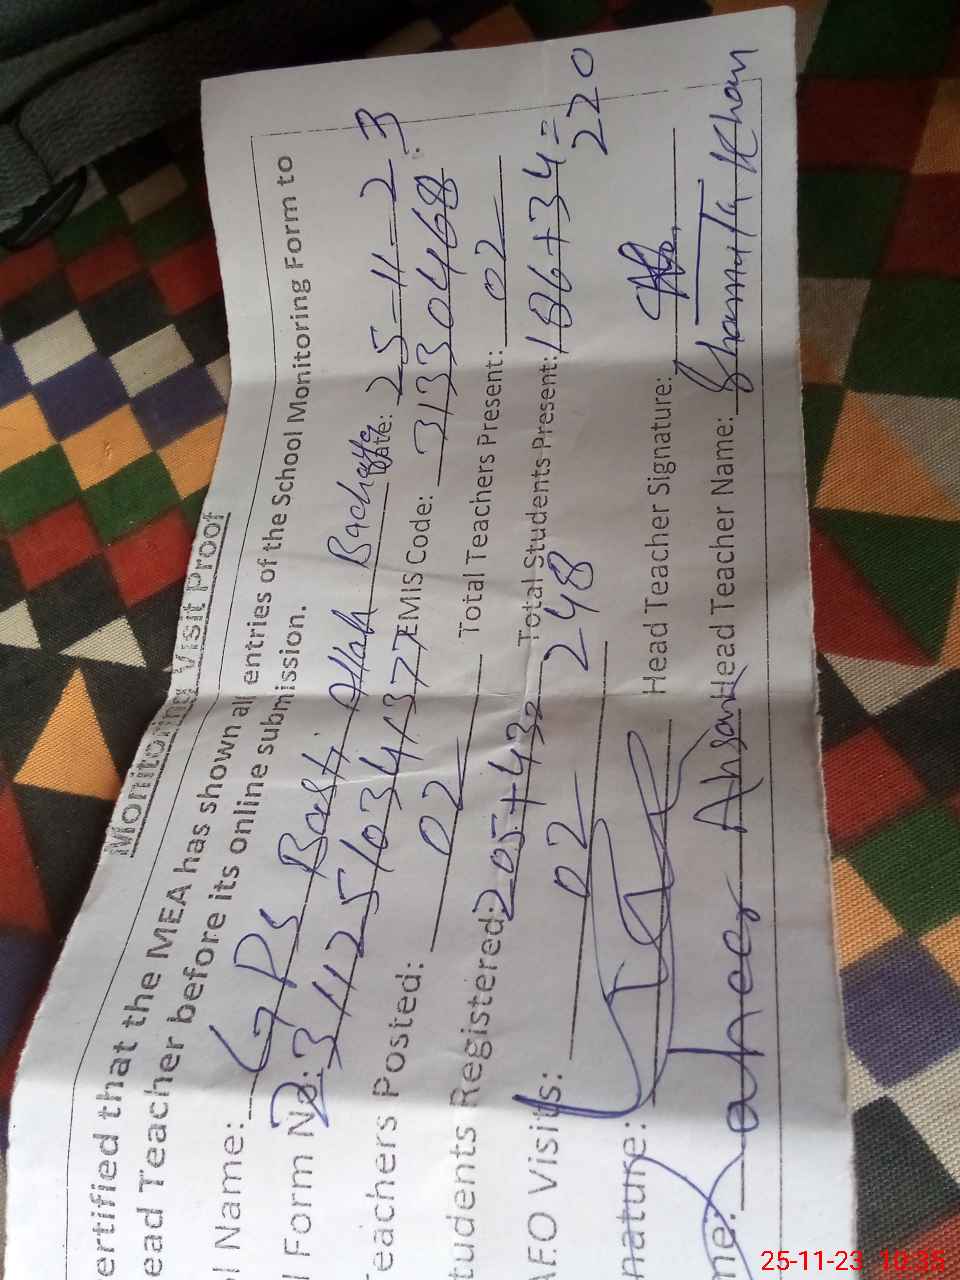 Monitoring Visit Proof
ertified that the MEA has shown all entries of the School Monitoring Form to
ead Teacher before its online submission.
l Name: GPS Basti Allah Bachaya Date: 25-11-23
l Form No: EMIS Code: 31330468
Teachers Posted: 02 Total Teachers Present: 02
tudents Registered: 205+43= 248 Total Students Present: 186+34= 220
AEO Visits: 02
nature: Head Teacher Signature:
me: Ahsan Head Teacher Name: Khan
25-11-23 10:35